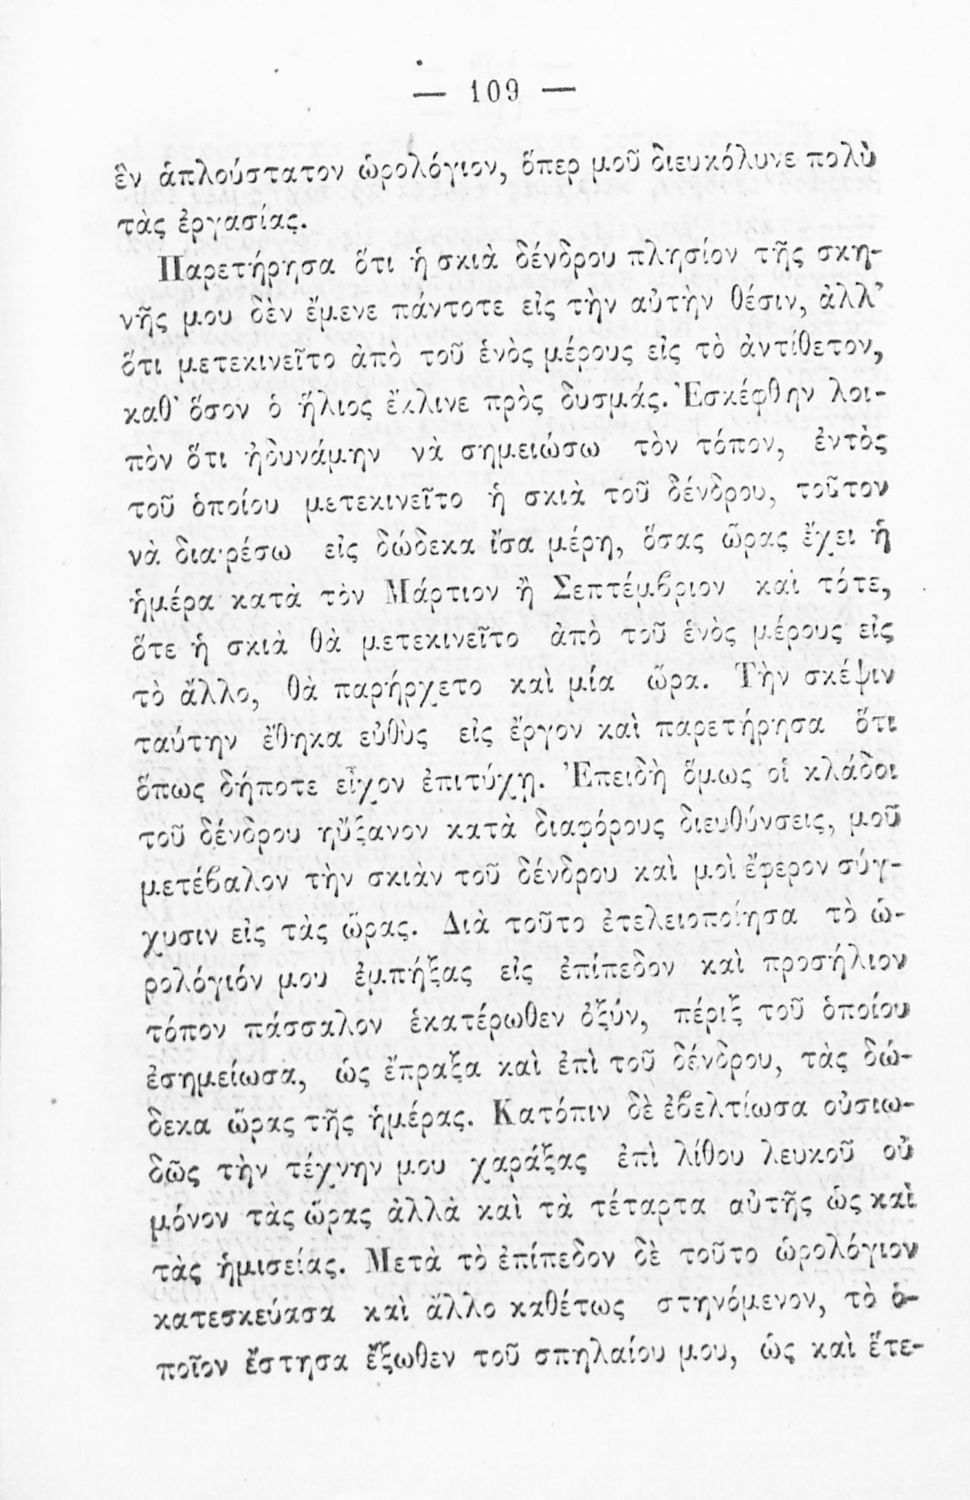 — 109 —
ἓν ἁπλούστατον ὡρολόγιον, ὅπερ μοῦ διευκόλυνε πολὺ
τὰς ἐργασίας.
Παρετήρησα ὅτι ἡ σκιὰ δένδρου πλησίον τῆς σκη-
νῆς μου δὲν ἔμενε πάντοτε εἰς τὴν αὐτὴν θέσιν, ἀλλ'
ὅτι μετεκινεῖτο ἀπὸ τοῦ ἑνὸς μέρους εἰς τὸ ἀντίθετον,
καθ' ὅσον ὁ ἥλιος ἔκλινε πρὸς δυσμάς. Ἐσκέφθην λοι-
πὸν ὅτι ἠδυνάμην νὰ σημειώσω τὸν τόπον, ἐντὸς
τοῦ ὁποίου μετεκινεῖτο ἡ σκιὰ τοῦ δένδρου, τοῦτον
νὰ διαιρέσω εἰς δώδεκα ἴσα μέρη, ὅσας ὥρας ἔχει ἡ
ἡμέρα κατὰ τὸν Μάρτιον ἢ Σεπτέμβριον καὶ τότε,
ὅτε ἡ σκιὰ θὰ μετεκινεῖτο ἀπὸ τοῦ ἑνὸς μέρους εἰς
τὸ ἄλλο, θὰ παρήρχετο καὶ μία ὥρα. Τὴν σκέψιν
ταύτην ἔθηκα εὐθὺς εἰς ἔργον καὶ παρετήρησα ὅτι
ὅπως δήποτε εἶχον ἐπιτύχῃ. Ἐπειδὴ ὅμως οἱ κλάδοι
τοῦ δένδρου ηὔξανον κατὰ διαφόρους διευθύνσεις, μοῦ
μετέβαλον τὴν σκιὰν τοῦ δένδρου καὶ μοὶ ἔφερον σύγ-
χυσιν εἰς τὰς ὥρας. Διὰ τοῦτο ἐτελειοποίησα τὸ ὡ-
ρολόγιόν μου ἐμπήξας εἰς ἐπίπεδον καὶ προσήλιον
τόπον πάσσαλον ἑκατέρωθεν ὀξύν, πέριξ τοῦ ὁποίου
ἐσημείωσα, ὡς ἔπραξα καὶ ἐπὶ τοῦ δένδρου, τὰς δώ-
δεκα ὥρας τῆς ἡμέρας. Κατόπιν δὲ ἐβελτίωσα οὐσιω-
δῶς τὴν τέχνην μου χαράξας ἐπὶ λίθου λευκοῦ οὐ
μόνον τὰς ὥρας ἀλλὰ καὶ τὰ τέταρτα αὐτῆς ὡς καὶ
τὰς ἡμισείας. Μετὰ τὸ ἐπίπεδον δὲ τοῦτο ὡρολόγιον
κατεσκεύασα καὶ ἄλλο καθέτως στηνόμενον, τὸ ὁ-
ποῖον ἔστησα ἔξωθεν τοῦ σπηλαίου μου, ὡς καὶ ἕτε-